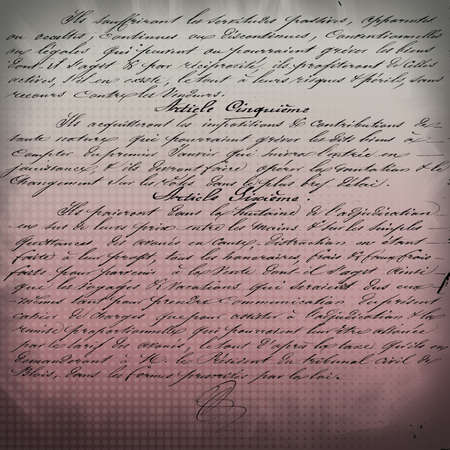 Ils souffriront les servitudes passives, apparentes
ou occultes, continues ou discontinues, conventionnelles
ou légales qui peuvent ou pourraient grever les biens
dont il s'agit & par réciprocité, ils profiteront de celles
actives, s'il en existe, le tout à leurs risques & périls, sans
recours contre les vendeurs.
Article Cinquième
Ils acquitteront les impositions & contributions de
toute nature que pourraient grever les dits biens à
compter du premier Janvier qui suivra l'entrée en
jouissance, & ils devront faire opérer la mutation & le
changement sur les rôles dans le plus bref délai.
Article Sixième.
Ils paieront dans la huitaine de l'adjudication
en sus de leurs prix entre les mains & sur les simples
quittances de avoués en cause, distraction en étant
faite à leur profit, tous les honoraires, frais & faux frais
faits pour parvenir à la vente dont il s'agit ainsi
que les voyages & vacations qui seraient dus eux
mêmes tant pour prendre communication du présent
cahier de charges que pour assister à l'adjudication & la
remise proportionnelle qui pourraient leur être allouée
par le tarif de avoués, le tout d'après la taxe qu'ils en
demanderont à M. le Président du tribunal civil de
Blois, dans les formes prescrites par la loi.